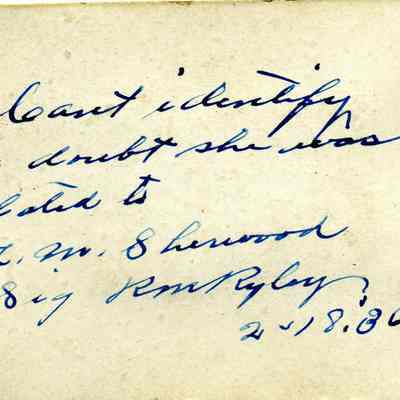 Cant identify
doubt she was
lated to
M. Sherwood
Sig
2-18.30